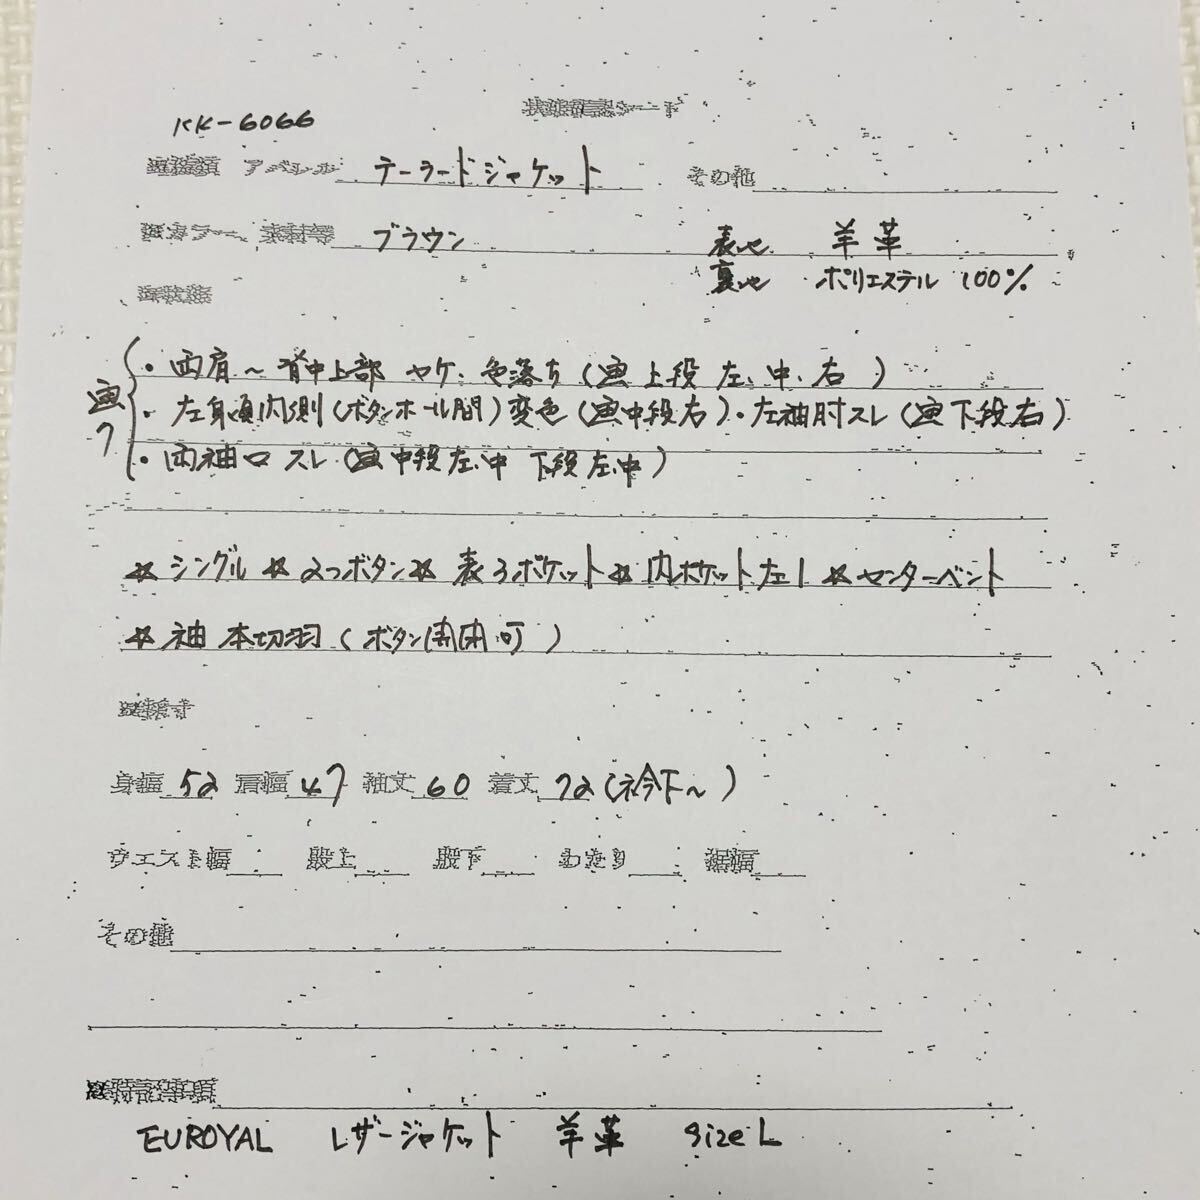 状態確認シート
KK-6066
アパレル テーラードジャケット その他
カラー、素材等 ブラウン 表地 羊革
裏地 ポリエステル 100%
・両肩～背中上部 ヤケ、色落ち (画上段 左、中、右)
画7
・左身頃内側(ボタンホール間)変色(画中段右)・左袖肘スレ(画下段右)
・両袖口 スレ(画中段左、中 下段左、中)
☆シングル ☆2つボタン ☆表3ポケット ☆内ポケット左1 ☆センターベント
☆袖 本切羽(ボタン開閉可)
身幅 52 肩幅 47 袖丈 60 着丈 72(衿下～)
ウエスト幅 股上 股下 わたり 裾幅
その他
※特記事項
EUROYAL レザージャケット 羊革 size L